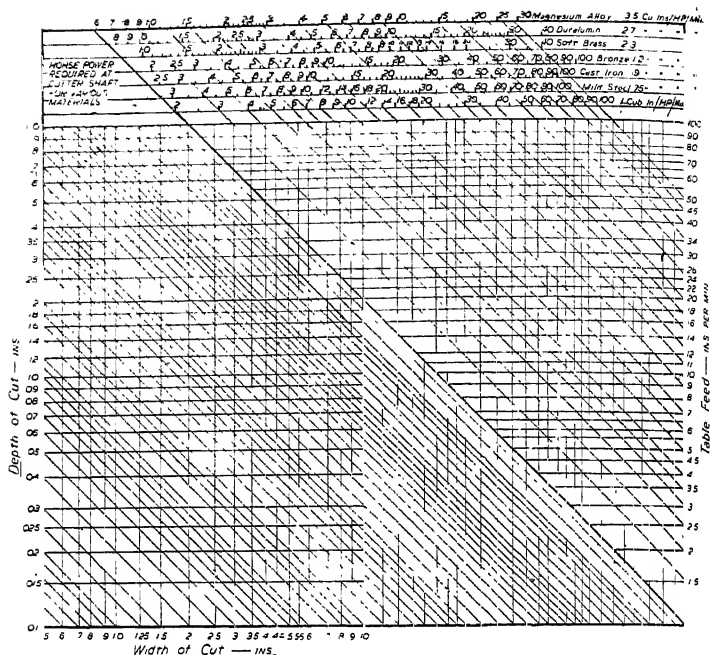 6 7 8 9 10 1.5 2 2.5 3 4 5 6 7 8 9 10 15 20 25 30 Magnesium Alloy 3.5 Cu Ins/HP/Min
8 9 10 1.5 2 2.5 3 4 5 6 7 8 9 10 15 20 30 40 Duralumin 2.7
10 1.5 2 3 4 5 6 7 8 9 10 30 40 Soft Brass 2.3
HORSE POWER
REQUIRED AT
CUTTER SHAFT
FOR VARIOUS
MATERIALS
2 2.5 3 4 5 6 7 8 9 10 15 20 30 40 50 60 70 80 90 100 Bronze 1.2
2.5 3 4 5 6 7 8 9 10 15 20 30 40 50 60 70 80 90 100 Cast Iron .9
3 4 5 6 7 8 9 10 12 14 16 18 20 30 40 50 60 70 80 90 100 Mild Steel .75
2 3 4 5 6 7 8 9 10 12 14 16 18 20 30 40 50 60 70 80 90 100
Depth of Cut — INS
10
9
8
7
6
5
4
3.5
3
2.5
2
1.8
1.6
1.4
1.2
1.0
0.9
0.8
0.7
0.6
0.5
0.4
0.3
0.25
0.2
0.15
0.1
100
90
80
70
60
50
45
40
34
30
26
24
22
20
18
16
14
12
11
10
9
8
7
6
5
4.5
4
3.5
3
2.5
2
1.5
Table Feed — INS PER MIN
.5 .6 .7 .8 .9 1.0 1.25 1.5 2 2.5 3 3.5 4 4.5 5 5.5 6 7 8 9 10
Width of Cut — INS.